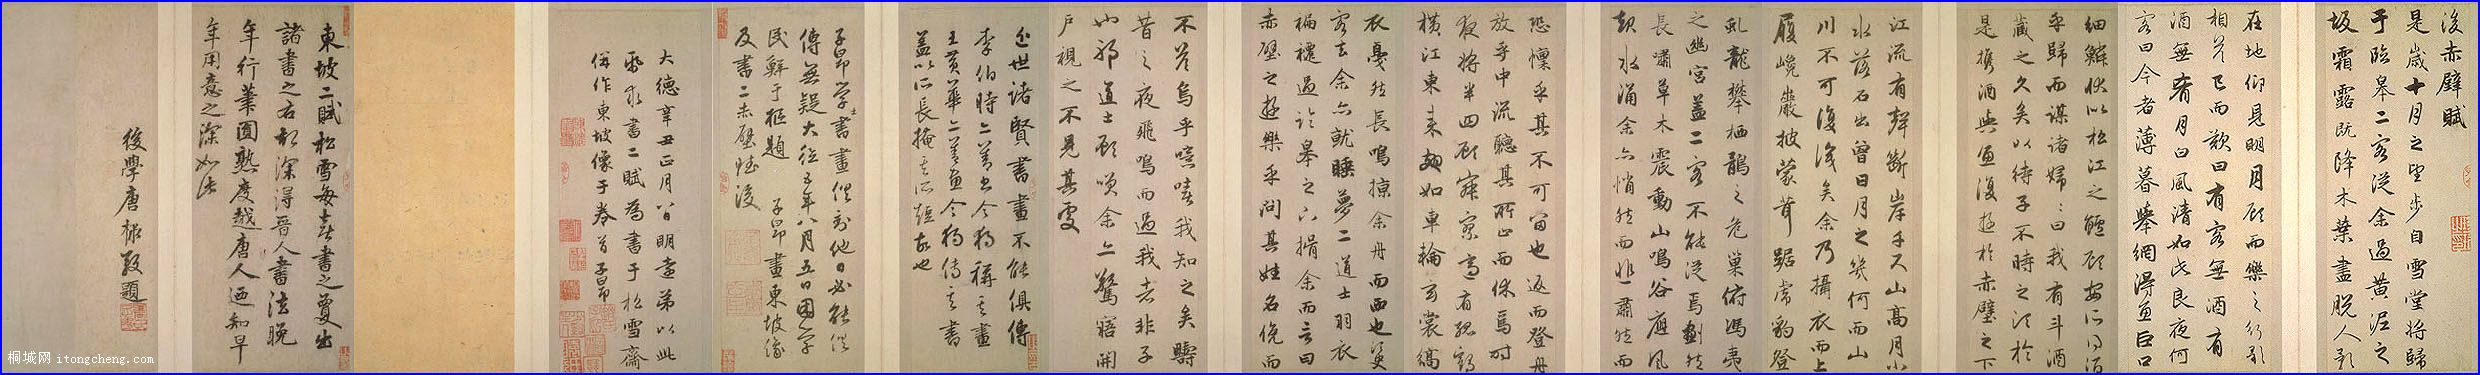 後赤壁賦
是歲十月之望步自雪堂將歸
于臨皋二客從余過黃泥之
坂霜露既降木葉盡脫人影
在地仰見明月顧而樂之行歌
相荅已而歎曰有客無酒有
酒無肴月白風清如此良夜何
客曰今者薄暮舉網得魚巨口
細鱗狀似松江之鱸顧安所得酒
乎歸而謀諸婦婦曰我有斗酒
藏之久矣以待子不時之須於
是攜酒與魚復遊於赤壁之下
江流有聲斷岸千尺山高月小
水落石出曾日月之幾何而山
川不可復識矣余乃攝衣而上
履巉巖披蒙茸踞虎豹登
虬龍攀栖鶻之危巢俯馮夷
之幽宮蓋二客不能從焉劃然
長嘯草木震動山鳴谷應風
起水涌余亦悄然而悲肅然而
恐懍乎其不可留也返而登舟
放乎中流聽其所止而休焉時
夜將半四顧寂寥適有孤鶴
橫江東來翅如車輪玄裳縞
衣戛然長鳴掠余舟而西也須臾
客去余亦就睡夢二道士羽衣
褊褼過臨皋之下揖余而言曰
赤壁之遊樂乎問其姓名俛而
不荅烏乎噫嘻我知之矣疇
昔之夜飛鳴而過我者非子
也邪道士顧笑余亦驚寤開
戶視之不見其處
近世諸賢書畫不能俱傳
李伯時亦善書今獨稱其畫
王黃華亦善畫今獨傳其書
蓋以所長掩其所短故也
子昂學士書畫俱到他日必能俱
傳無疑大德五年八月五日困學
民鮮于樞題 子昂畫東坡像
及書二赤壁賦後
大德辛丑正月八日明遠弟以此
紙求書二賦為書于松雪齋
併作東坡像于卷首子昂
東坡二賦松雪每喜書之夐出
諸書之右於深得晉人書法晚
年行筆圓熟度越唐人迺知早
年用意之深如此
後學唐棣敬題
桐城网 itongcheng.com